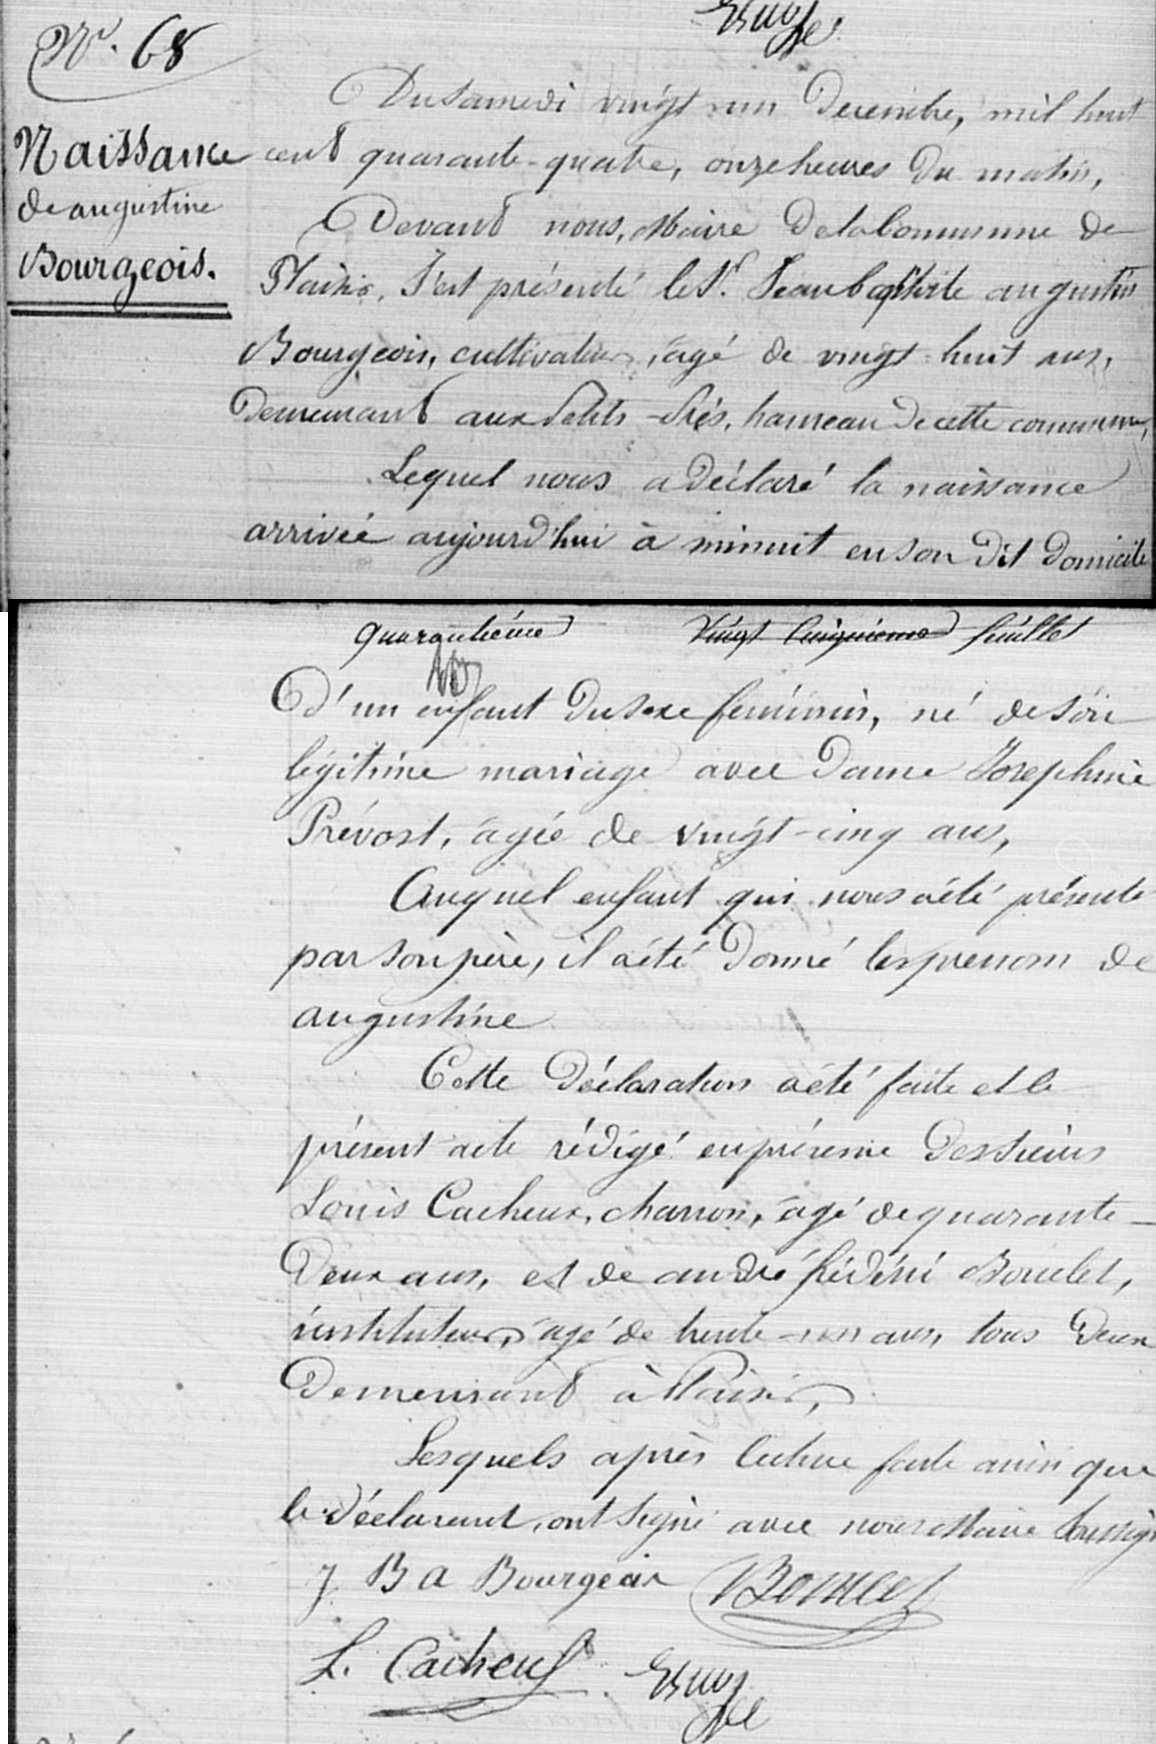 N°. 68
Naissance
de augustine
Bourgeois.
Du Samedi vingt un Decembre, mil huit
cent quarante-quatre, onze heures du matin,
Devant nous, Maire de la Commune de
Plaisir, s'est présenté le Sr. Jean baptiste augustin
Bourgeois, cultivateur, âgé de vingt huit ans,
demeurant aux Petits-Prés, hameau de cette commune,
Lequel nous a déclaré la naissance
arrivée aujourd'hui à minuit en son dit domicile
quarantième Vingt Cinquieme feuillet
D'un enfant du sexe féminin, né de son
légitime mariage avec Dame Josephine
Prévost, agée de vingt-cinq ans,
Auquel enfant qui nous a été présenté
par son père, il a été donné les prenom de
augustine
Cette Déclaration a été faite et le
présent acte rédigé en présence des Sieurs
Louis Cacheux, charron, âgé de quarante-
deux ans, et de andré frédéric Boucler,
instituteur, âgé de trente-un ans, tous deux
demeurant à Plaisir,
Lesquels après lecture faite ainsi que
le déclarant, ont signé avec nous Maire Soussig
J. B a Bourgeois
L. Cacheux